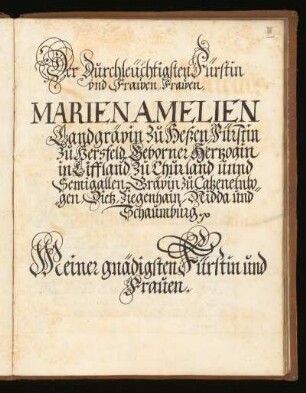 Der Durchleuchtigsten Fürstin
vnd Frawen Frawen
MARIEN AMELIEN
Landgrävin Zu Heßen Fürstin
Zu Hersfeld Geborner Hertzogin
in Liffland Zu Churland unnd
Semigallen Grävin Zu Catzenelnbo-
gen Dietz Ziegenhain Nidda und
Schaumburg
Meiner gnädigsten Fürstin und
Frauen.